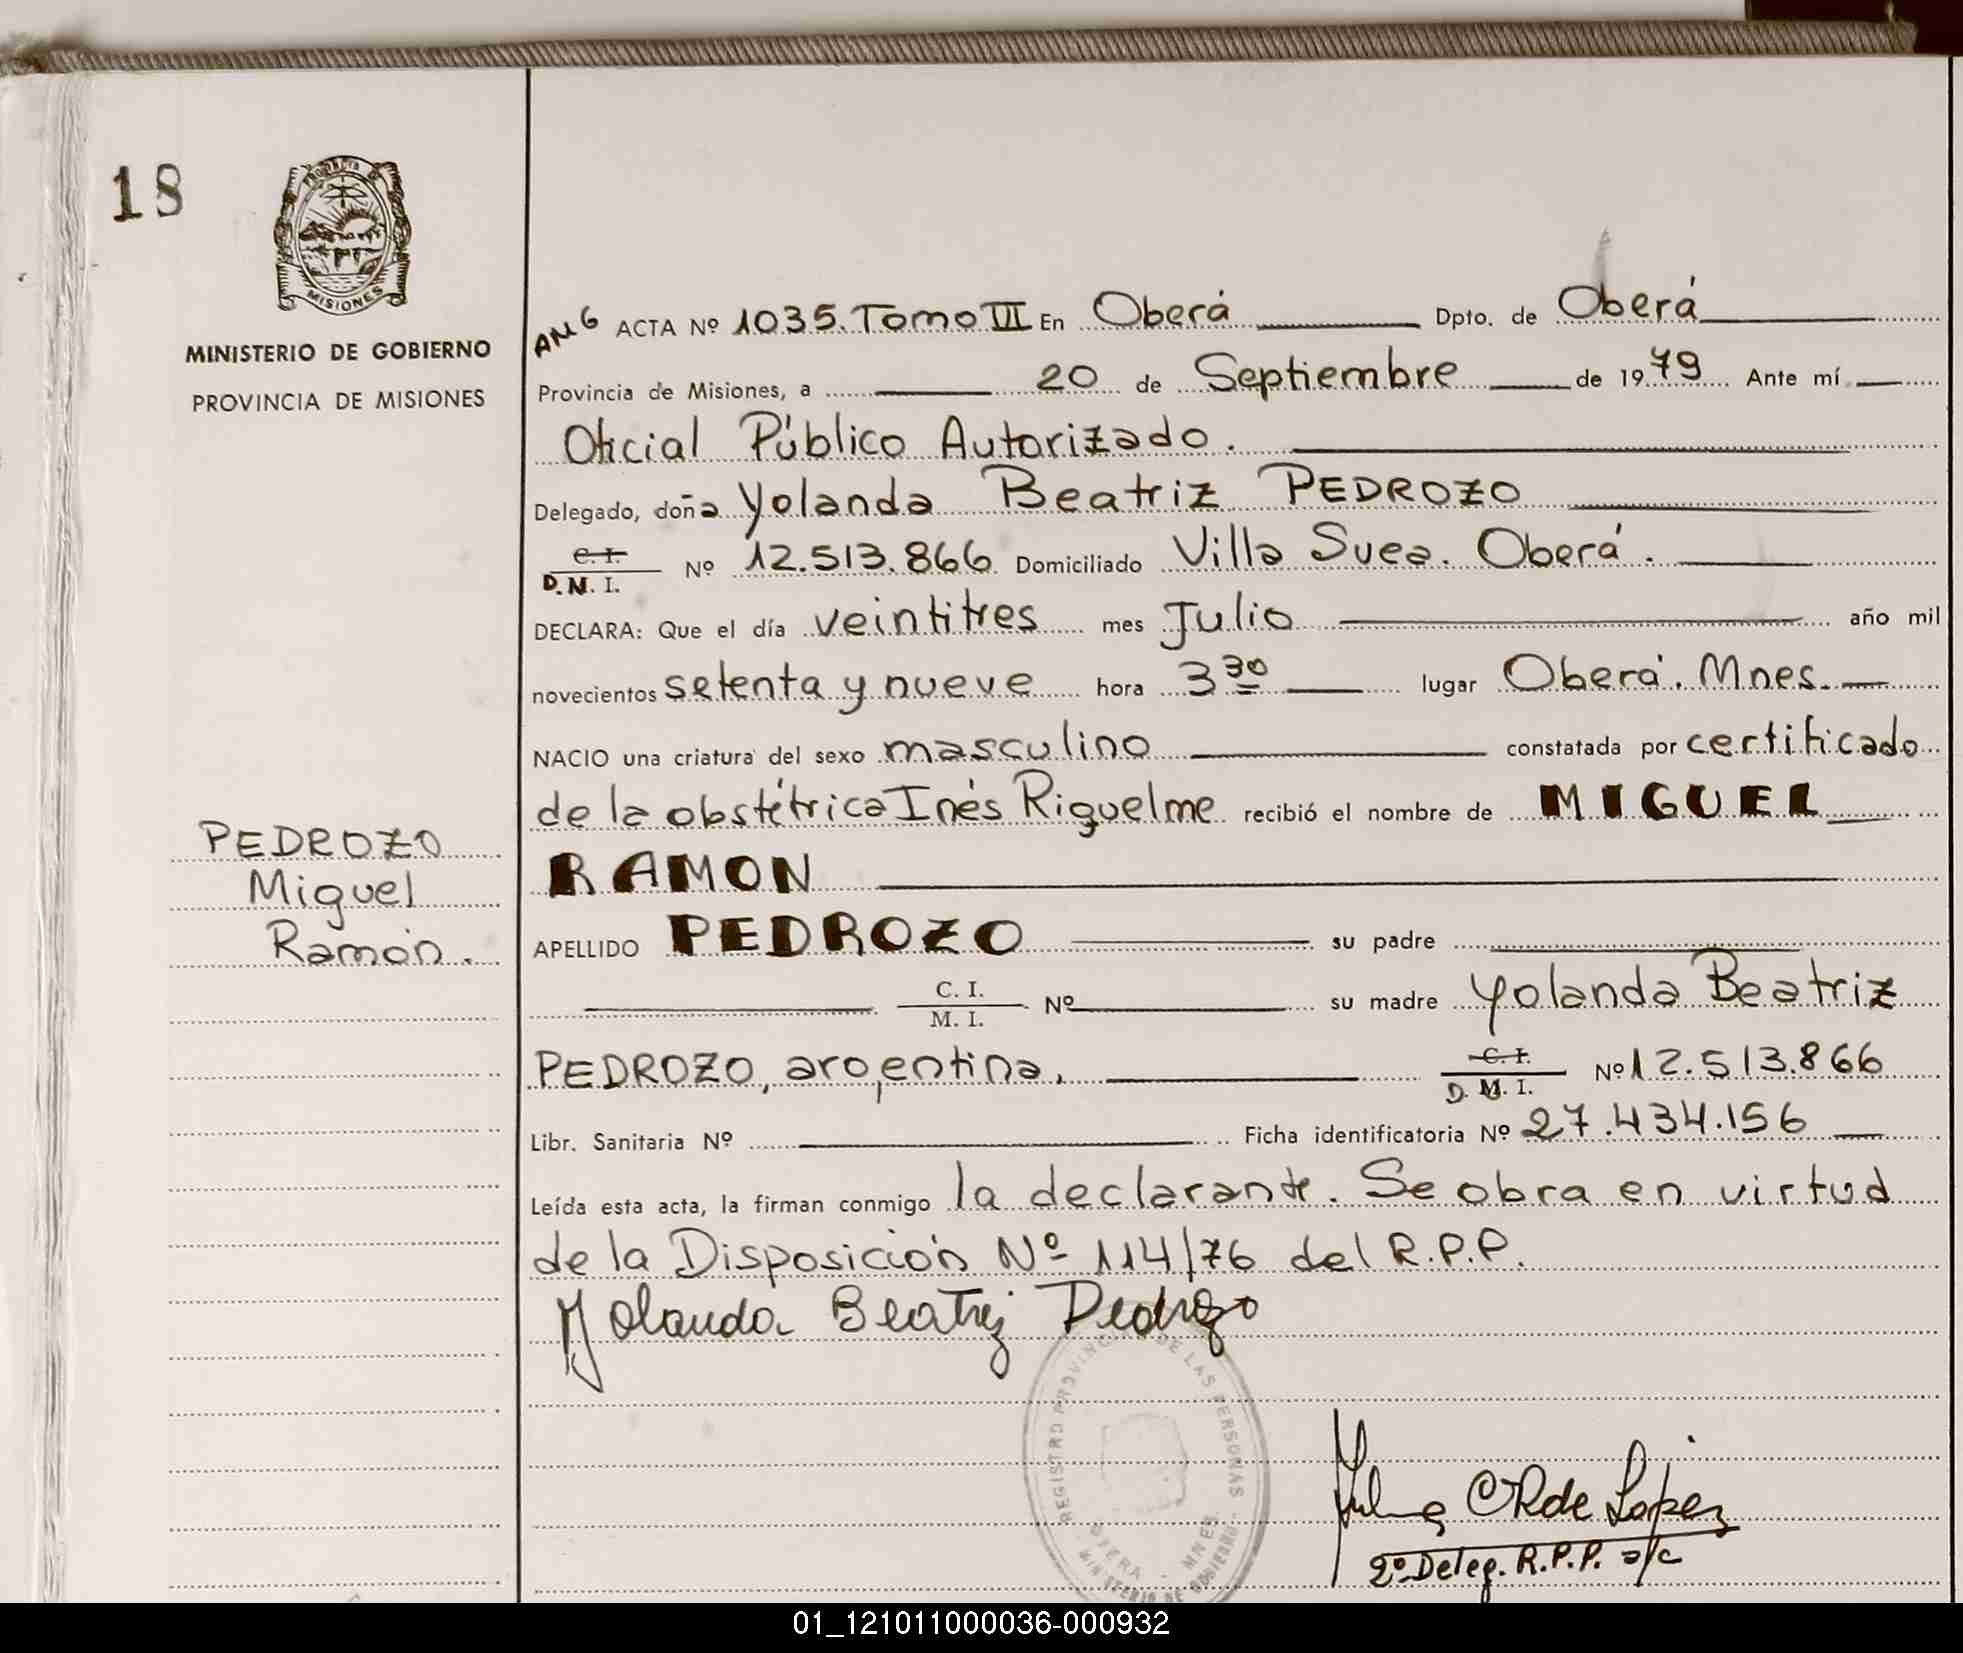 18
PROVINCIA DE
MISIONES
MINISTERIO DE GOBIERNO
PROVINCIA DE MISIONES
ACTA Nº 1035. Tomo III En Oberá Dpto. de Oberá
Provincia de Misiones, a 20 de Septiembre de 1979 Ante mí
Oficial Público Autorizado.
Delegado, doña Yolanda Beatriz PEDROZO
C. I.
D.N. I. Nº 12.513.866 Domiciliado Villa Svea. Oberá.
DECLARA: Que el día veintitres mes Julio año mil
novecientos setenta y nueve hora 3 30 lugar Oberá. Mnes.
NACIO una criatura del sexo masculino constatada por certificado
de la obstétrica Inés Riquelme recibió el nombre de MIGUEL
RAMON
APELLIDO PEDROZO su padre
C. I.
M. I. Nº su madre Yolanda Beatriz
PEDROZO, argentina. C. I.
D. N. I. Nº 12.513.866
Libr. Sanitaria Nº Ficha identificatoria Nº 27.434.156
Leída esta acta, la firman conmigo la declarante. Se obra en virtud
de la Disposición Nº 114/76 del R.P.P.
Yolanda Beatriz Pedrozo
PEDROZO
Miguel
Ramón.
REGISTRO PROVINCIAL DE LAS PERSONAS
OBERA - MNES.
MINISTERIO DE GOBIERNO
de Lopez
2º Deleg. R.P.P. a/c
01_121011000036-000932